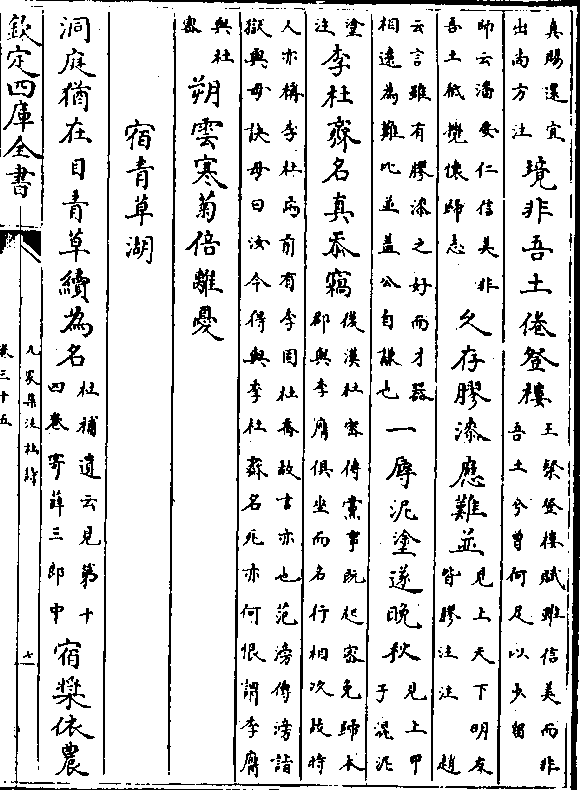 真賜還宜
出尚方注境非吾土倦登樓王粲登樓賦雖信美而非
吾土兮曾何足以少留
師云潘安仁信美非
吾土祗攪懷歸志久存膠漆應難並見上天下朋友
皆膠注注趙
云言雖有膠漆之好而才器
相遠為難比並蓋公自謙也一辱泥塗遂晚秋見上甲
子混泥
塗
注李杜齊名真忝竊後漢杜密傳黨事既起密免歸本
郡與李膺俱坐而名行相次故時
人亦稱李杜焉前有李固杜喬故言亦也范滂傳滂詣
獄與母訣母曰汝今得與李杜齊名死亦何恨謂李膺
與杜
密朔雲寒菊倍離憂
宿青草湖
洞庭猶在目青草續為名杜補遺云見第十
四卷寄薛三郎中宿槳依農
欽定四庫全書
九家集注杜詩
卷三十五
七